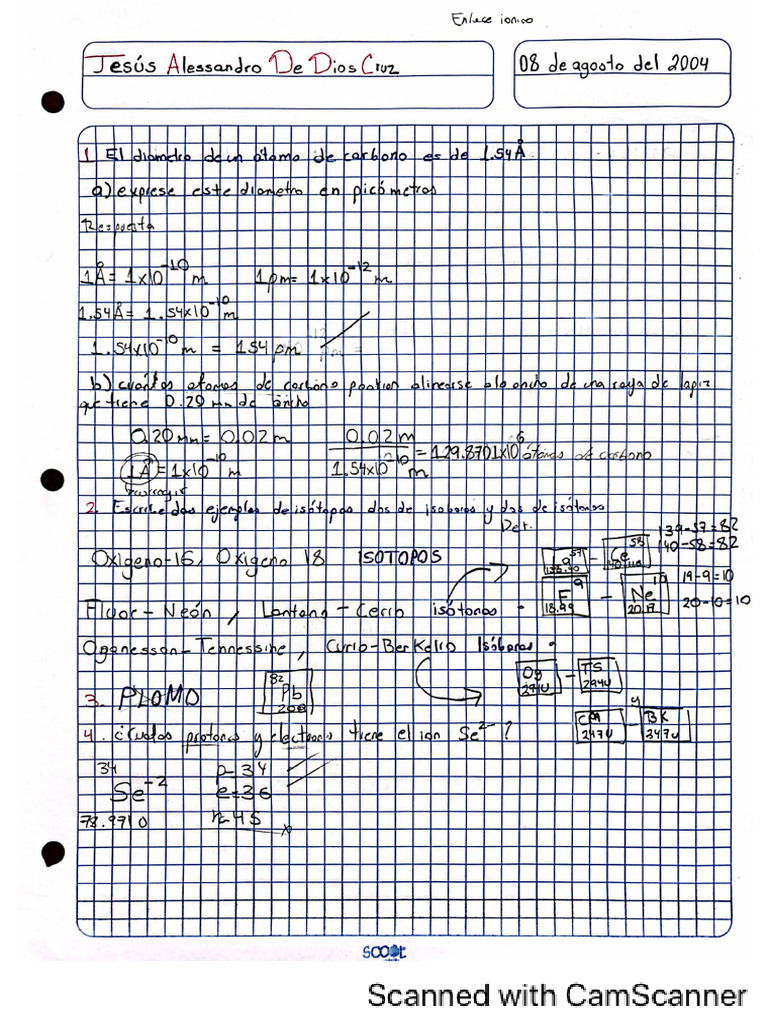 Enlace ionico
Jesús Alessandro De Dios Cruz
08 de agosto del 2004
1 El diametro de un átomo de carbono es de 1.54Å
a) exprese este diametro en picómetros
Respuesta
1Å= 1x10⁻¹⁰ m 1pm= 1x10⁻¹² m
1.54Å= 1.54x10⁻¹⁰ m
1.54x10⁻¹⁰ m = 154 pm
b) cuántos atomos de carbono podrian alinearse a lo ancho de una raya de lapiz
que tiene 0.20 mm de ancho
0.20 mm = 0.02 m 0.02 m
= 129.8701x10⁶ átomos de carbono
1Å = 1x10⁻¹⁰ m 1.54x10⁻¹⁰ m
2. Escribe dos ejemplos de isótopos dos de isobaros y dos de isótonos
Det.
139-57=82
140-58=82
Oxigeno-16, Oxigeno 18 ISOTOPOS
57 58
La - Ce
19-9=10
20-10=10
Fluor - Neón, Lantano - Cerio isótonos
9 10
F - Ne
18.99 20.17
Oganesson - Tennessine, Curio - Berkelio Isóbaros
Og - TS
294u 294u
y
CM - BK
247u 247u
3. PLOMO
82
Pb
208
4. ¿Cuátos protones y electrones tiene el ion Se²⁻?
34
Se⁻²
78.9710
p=34
e=36
n=45
SCOOT
Scanned with CamScanner